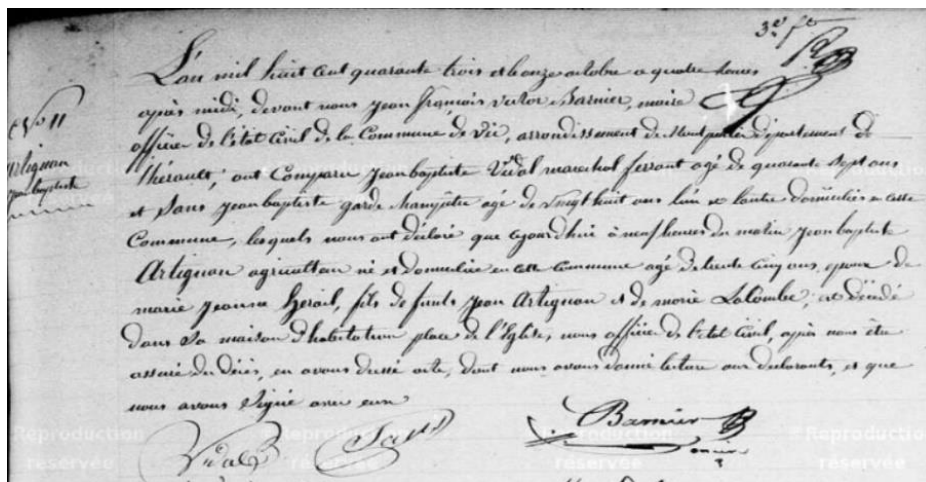 3e ft
L'an mil huit cent quarante trois et le onze octobre a quatre heures
après midi, devant nous Jean françois victor Barnier, maire
officier de l'état Civil de la Commune de Vic, arrondissement de Montpellier département de
l'hérault; ont Comparu Jean baptiste Vidal marechal ferrant agé de quarante Sept ans
et Sans Jean baptiste garde Champêtre agé de vingt huit ans l'un et l'autre domiciliés en cette
Commune, lesquels nous ont déclaré que cejourd'hui à neuf heures du matin Jean baptiste
Artignan agriculteur né et domicilié en cette commune agé de trente cinq ans, epoux de
marie Jeanne herail, fils de feu Jean Artignan et de marie LaCombe; est décédé
dans Sa maison d'habitation place de l'Eglise, nous officier de l'état Civil, après nous être
assuré du décès, en avons dressé acte, dont nous avons donné lecture aux declarants, et que
nous avons Signé avec eux
No 11
Artignan
Jean baptiste
Vidal Sans Barnier
maire
Reproduction
réservée
Reproduction
réservée
Reproduction
réservée
Reproduction
réservée